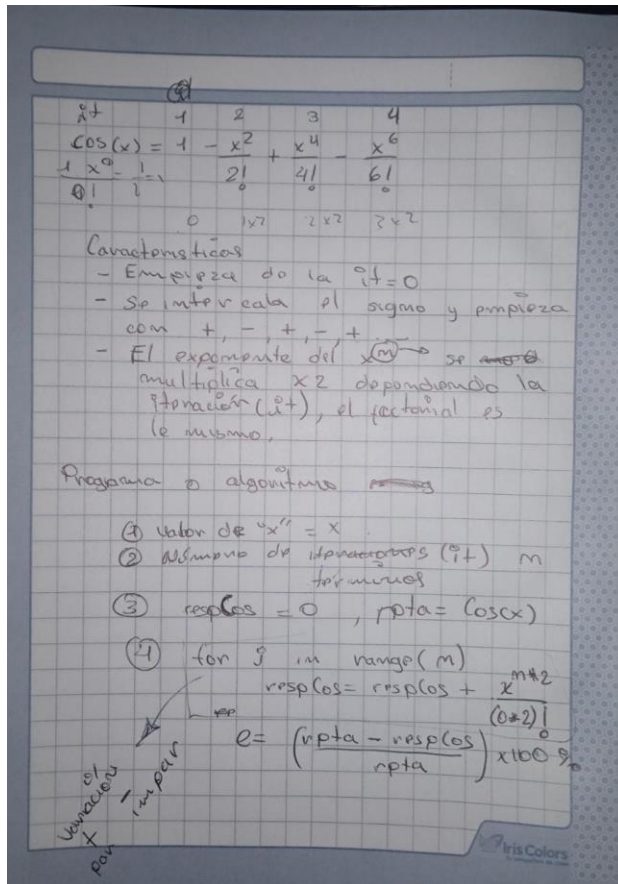 it 1 2 3 4
cos(x) = 1 - x²/2! + x⁴/4! - x⁶/6!
1 x⁰/0! = 1/1 = 1
0 1x2 2x2 3x2
Caracteristicas
- Empieza de la it=0
- Se intercala el signo y empieza
con +, -, +, -, + ...
- El exponente del xⁿ → se
multiplica x2 dependiendo la
iteración (it), el factorial es
lo mismo.
Programa o algoritmo
① valor de "x" = x
② Número de iteraciones (it) n
términos
③ respCos = 0 , rpta = Cos(x)
④ for i in range(n)
respCos = respCos + x^(n*2)/(0*2)!
e = (rpta - respCos / rpta) x100 %
variación
+ - impar
par
Iris Colors